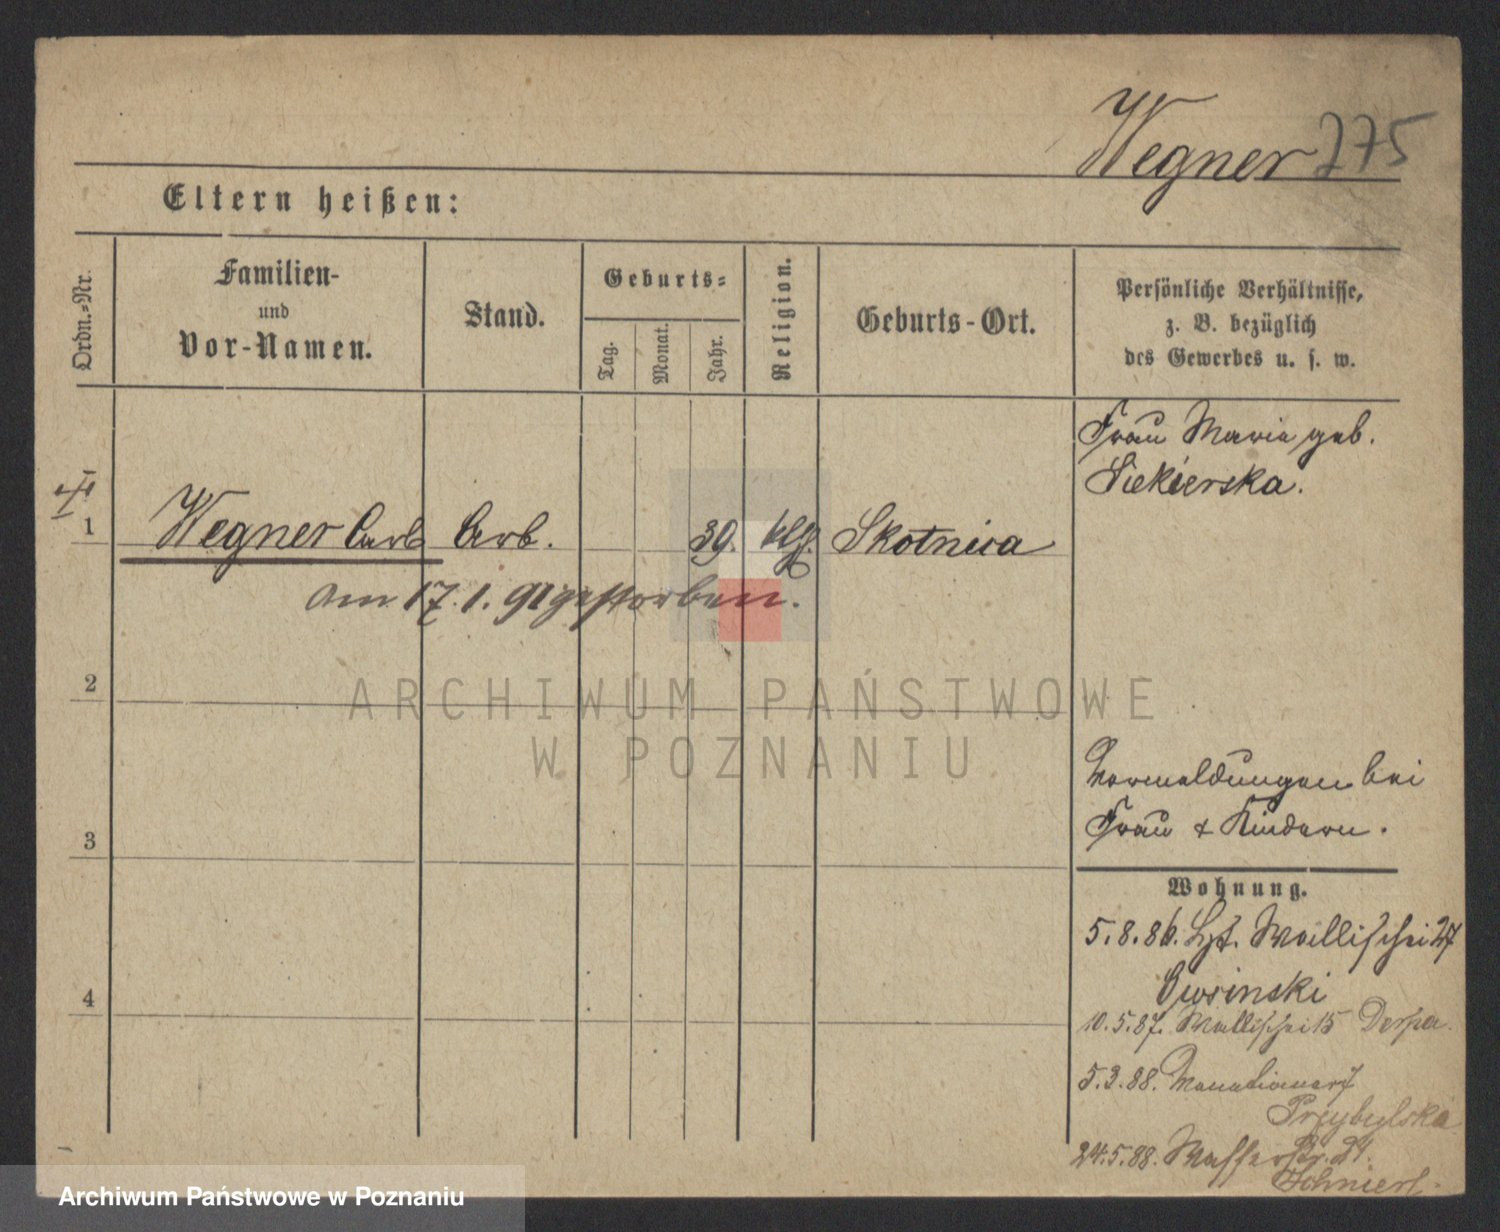 Wegner 275
Eltern heißen:
Ordn.-Nr.
Familien-
und
Vor-Namen.
Stand.
Geburts-
Tag.
Monat.
Jahr.
Religion.
Geburts-Ort.
Persönliche Verhältnisse,
z. B. bezüglich
des Gewerbes u. s. w.
Frau Maria geb.
Siekierska.
1 Wegner Carl Arb. 39. Skotnica
am 17.1.91 gestorben.
2
ARCHIWUM PAŃSTWOWE
W POZNANIU
Vermeldungen bei
Frau & Kindern.
3
Wohnung.
5.8.86. Wallischei 27
Owsinski
4
10.5.87. Wallischei 15
5.3.88.
Przybylska
24.5.88. Wasserstr. 24.
Archiwum Państwowe w Poznaniu